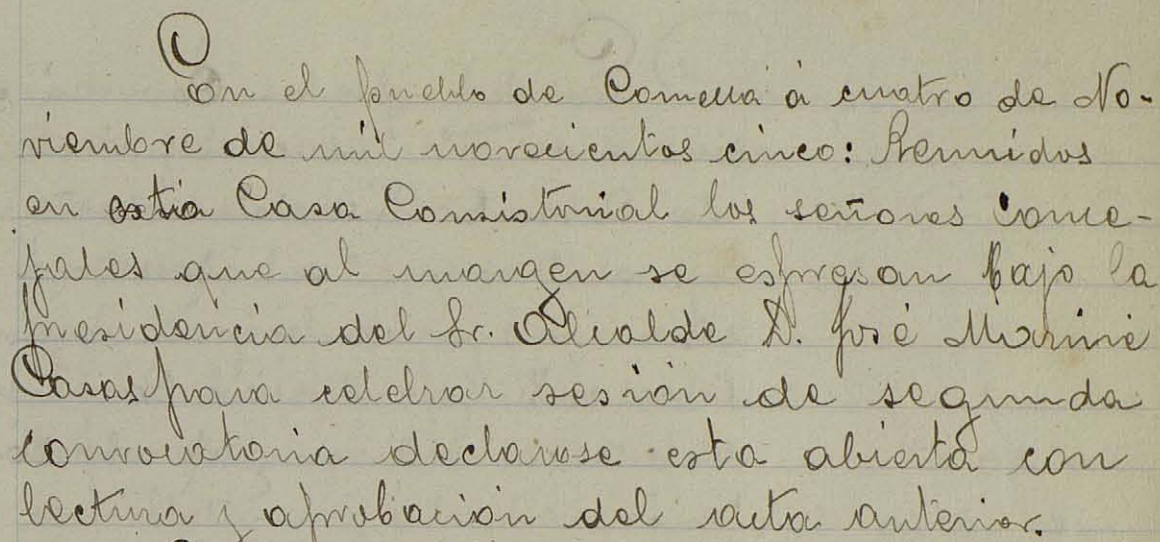 En el pueblo de Cornellá á cuatro de No-
viembre de mil novecientos cinco: Reunidos
en esta Casa Consistorial los señores conce-
jales que al margen se espresan bajo la
presidencia del Sr. Alcalde D. José Mariné
Casas para celebrar sesión de segunda
convocatoria declarose esta abierta con
lectura y aprobación del acta anterior.